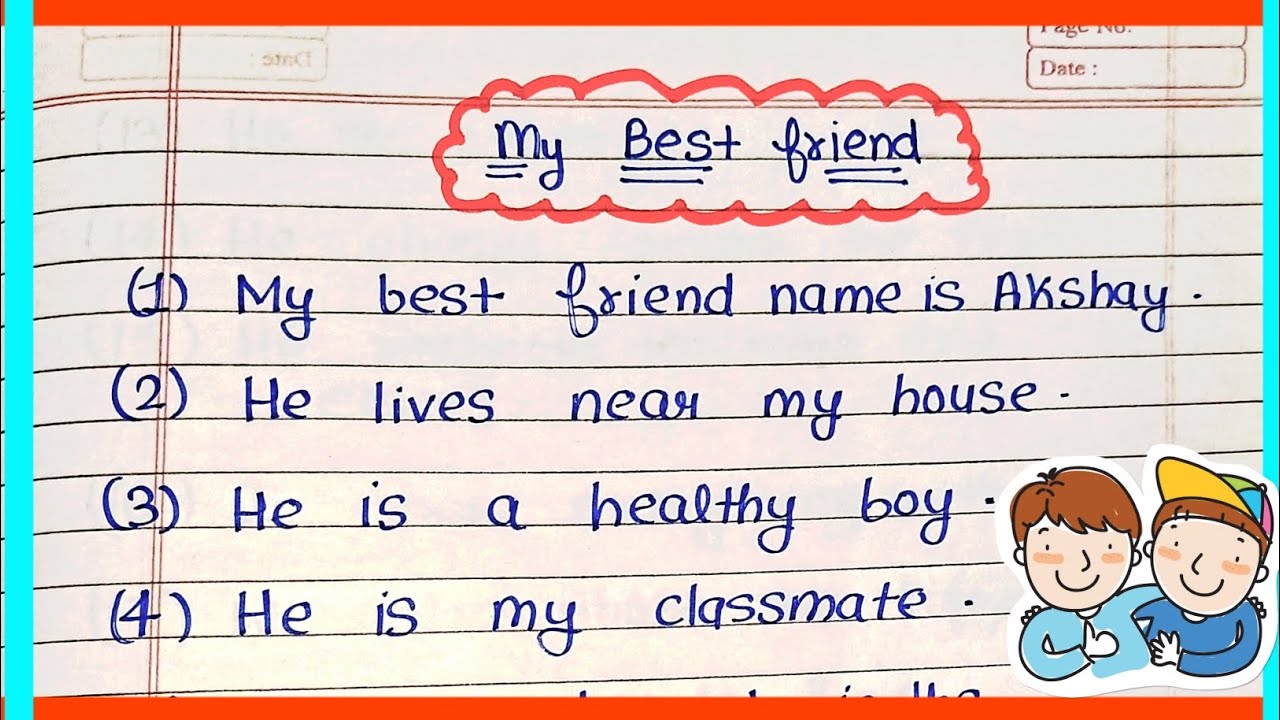 Page No.
Date :
Date :
My Best friend
(1) My best friend name is Akshay.
(2) He lives near my house.
(3) He is a healthy boy.
(4) He is my classmate.
in the